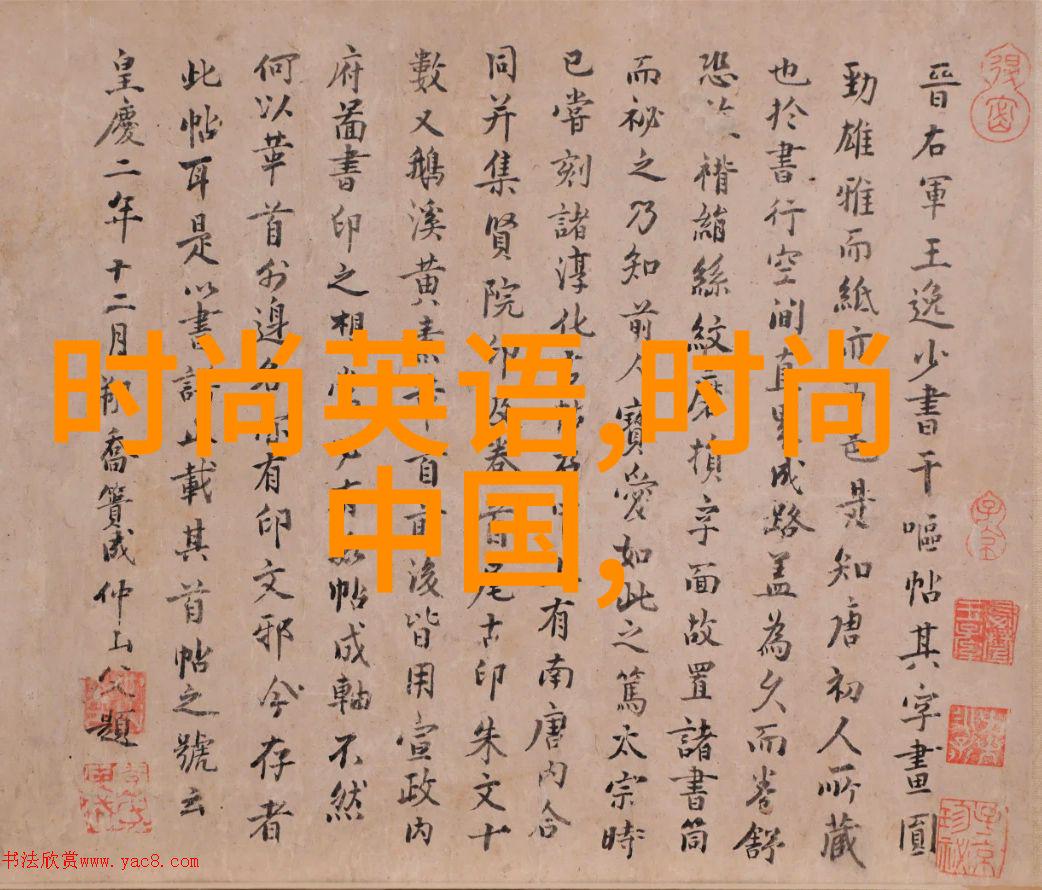 晉右軍王逸少書干嘔帖其字畫圓
勁雄雅而紙亦色是知唐初人所藏
也於書行空間真界成路蓋為久而卷舒
恐褙縮絲紋磨損字面故置諸書筒
而祕之乃知前人寶愛如此之篤太宗時
已嘗刻諸淳化帖有南唐內合
同并集賢院印及卷首尾古印朱文十
數又鵝溪黃素百後皆用宣政內
府圖書印之想帖成軸不然
何以首外邊名有印文邪今存者
此帖耳是以書載其首帖之號云
皇慶二年十二月朔喬簣成仲山父題
时尚英语,时尚
中国,
书法欣赏www.yac8.com